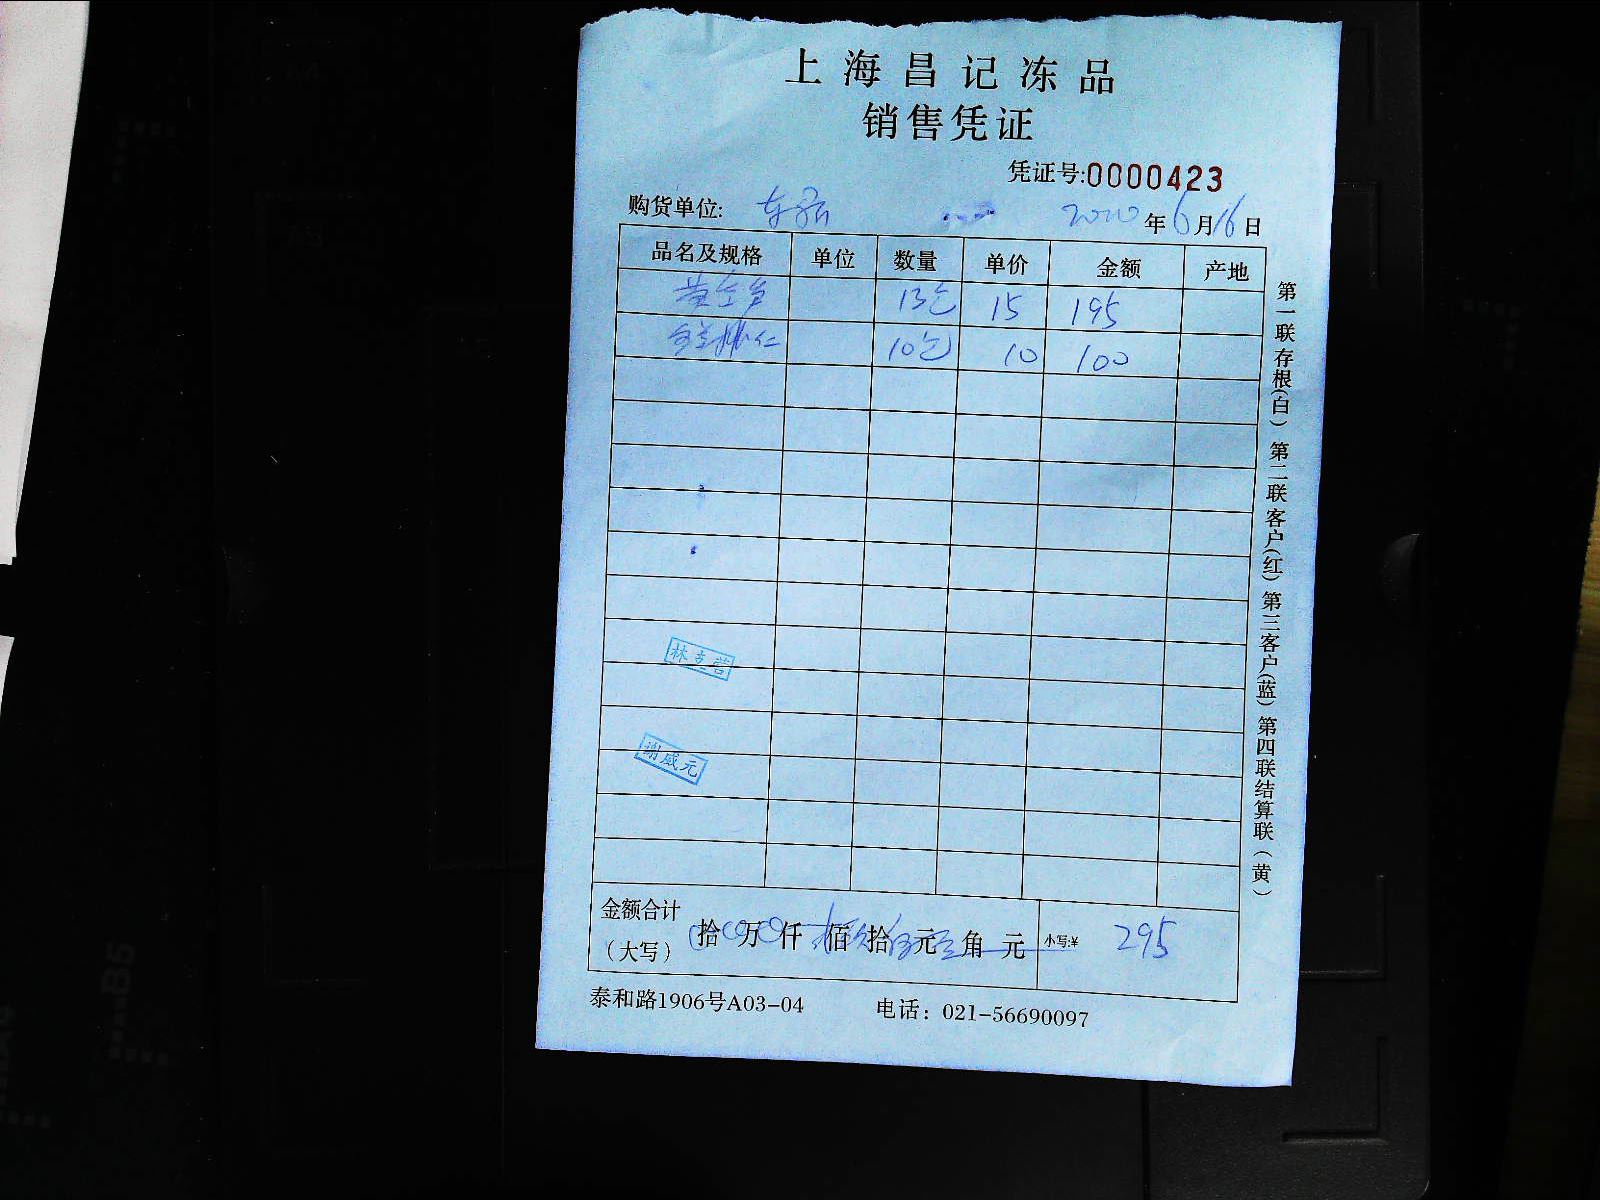 上海昌记冻品
销售凭证
凭证号:0000423
购货单位: 2020年6月16日
品名及规格 单位 数量 单价 金额 产地
13包 15 195
仁 10包 10 100
林 营
谢威元
金额合计 拾 万 仟 佰 拾 元 角 元 小写:¥ 295
(大写)
泰和路1906号A03-04 电话：021-56690097
第一联存根(白) 第二联客户(红) 第三客户(蓝) 第四联结算联(黄)
AB5